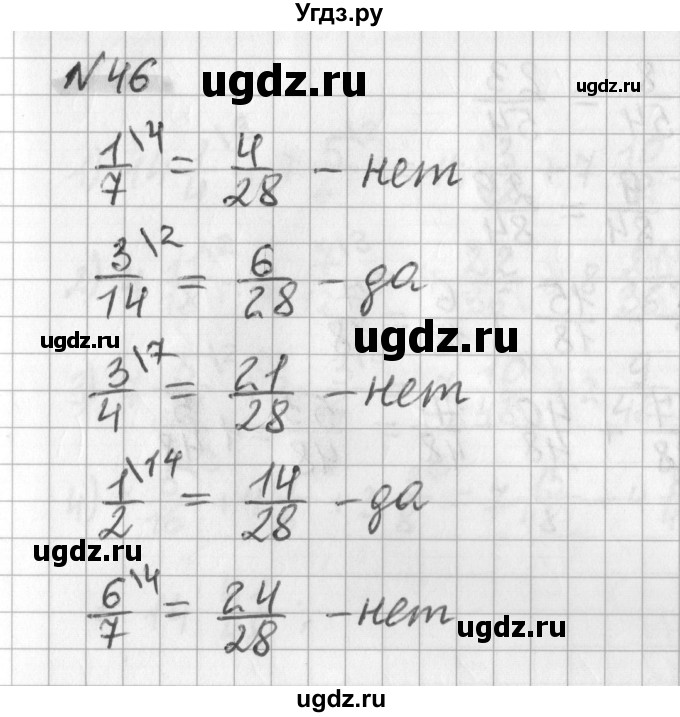 Угдз.ру
№46
ugdz.ru
ugdz.ru
1/7 \4 = 4/28 - нет
3/14 \2 = 6/28 - да
ugdz.ru
ugdz.ru
3/4 \7 = 21/28 - нет
1/2 \14 = 14/28 - да
ugdz.ru
6/7 \4 = 24/28 - нет
ugdz.ru
ugdz.ru